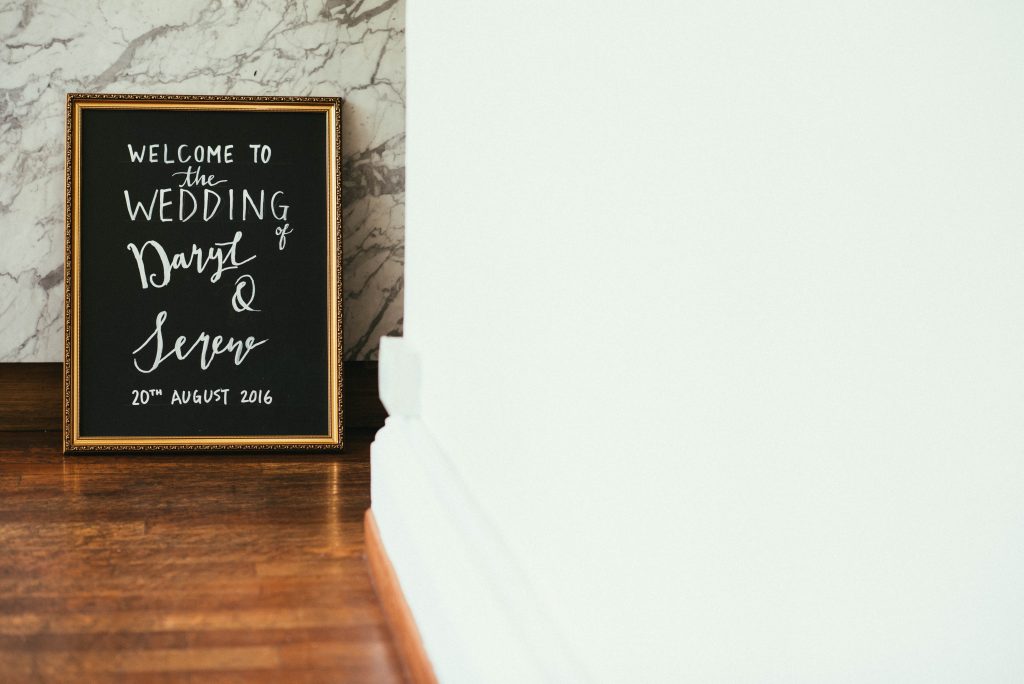 WELCOME TO
the
WEDDING
of
Daryl
&
Serene
20TH AUGUST 2016